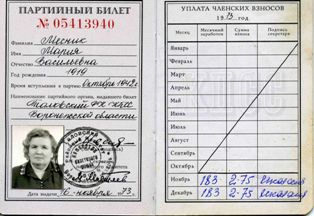 ПАРТИЙНЫЙ БИЛЕТ
№ 05413940
Фамилия Месник
Имя Мария
Отчество Васильевна
Год рождения 1919
Время вступления в партию октябрь 1942 г.
Наименование партийного органа, выдавшего билет
Таловский РК КПСС
Воронежской области
Дата выдачи 16 ноября 73.
УПЛАТА ЧЛЕНСКИХ ВЗНОСОВ
1973 год
Месяц Месячный заработок Сумма взноса Подпись секретаря
Январь
Февраль
Март
Апрель
Май
Июнь
Июль
Август
Сентябрь
Октябрь
Ноябрь 183 2-75
Декабрь 183 2-75